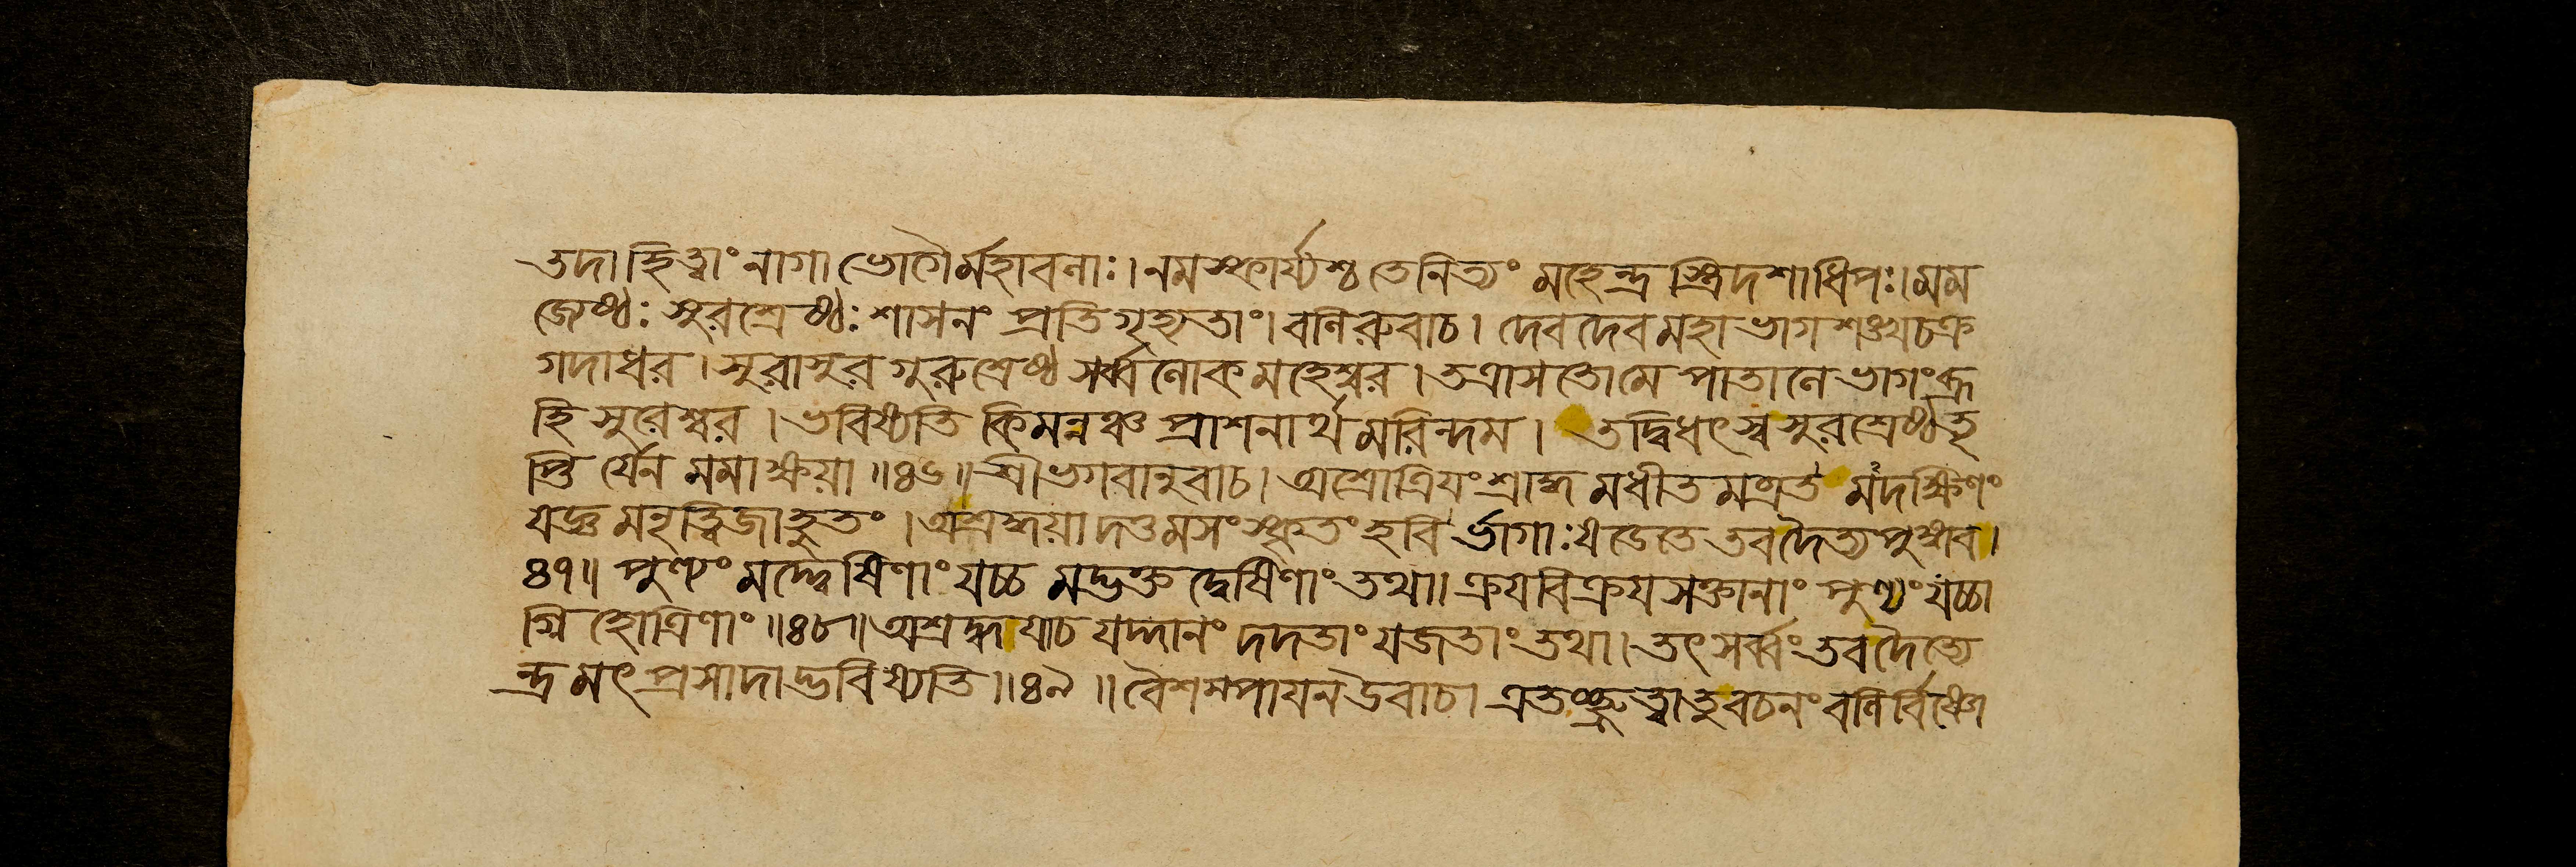 তদা হি ত্বাং নাগা ভোগৈর্মহাবলাঃ। নমস্কার্য্যশ্চ তে নিত্যং মহেন্দ্র স্ত্রিদশাধিপঃ। মম
জেষ্ঠঃ সুরশ্রেষ্ঠঃ শাসনং প্রতিগৃহ্যতাং। বলিরুবাচ। দেবদেব মহাভাগ শঙ্খচক্র
গদাধর। সুরাসুর গুরুশ্রেষ্ঠ সর্ব্বলোক মহেশ্বর। তত্রাসতো মে পাতালে ভাগং ব্রূ
হি সুরেশ্বর। ভবিষ্যতি কিমন্নঞ্চ প্রাশনার্থমরিন্দম। তদ্বিধৎস্ব সুরশ্রেষ্ঠ তৃ
প্তি র্যেন মমাক্ষয়া॥৪৬॥ শ্রীভগবানুবাচ। অশ্রোত্রিযং শ্রাদ্ধ মধীত মব্রত মদক্ষিণং
যজ্ঞ মনৃত্বিজা হুতং। অশ্রদ্ধয়া দত্তমসংস্কৃতং হবি র্ভাগাঃ ষডেতে তব দৈত্য পুঙ্গব।
৪৭॥ পুণ্যং মদ্দ্বেষিণাং যচ্চ মদ্ভক্ত দ্বেষিণাং তথা। ক্রয বিক্রয সক্তানাং পুণ্যং যচ্চা
গ্নি হোত্রিণাং॥৪৮॥ অশ্রদ্ধযা চ যদ্দানং দদতাং যজতাং তথা। তৎ সর্ব্বং তব দৈত্যে
ন্দ্র মৎপ্রসাদাদ্ভবিষ্যতি॥৪৯॥ বৈশম্পাযন উবাচ। এতচ্ছ্রুত্বা তু বচনং বলির্বিষ্ণো